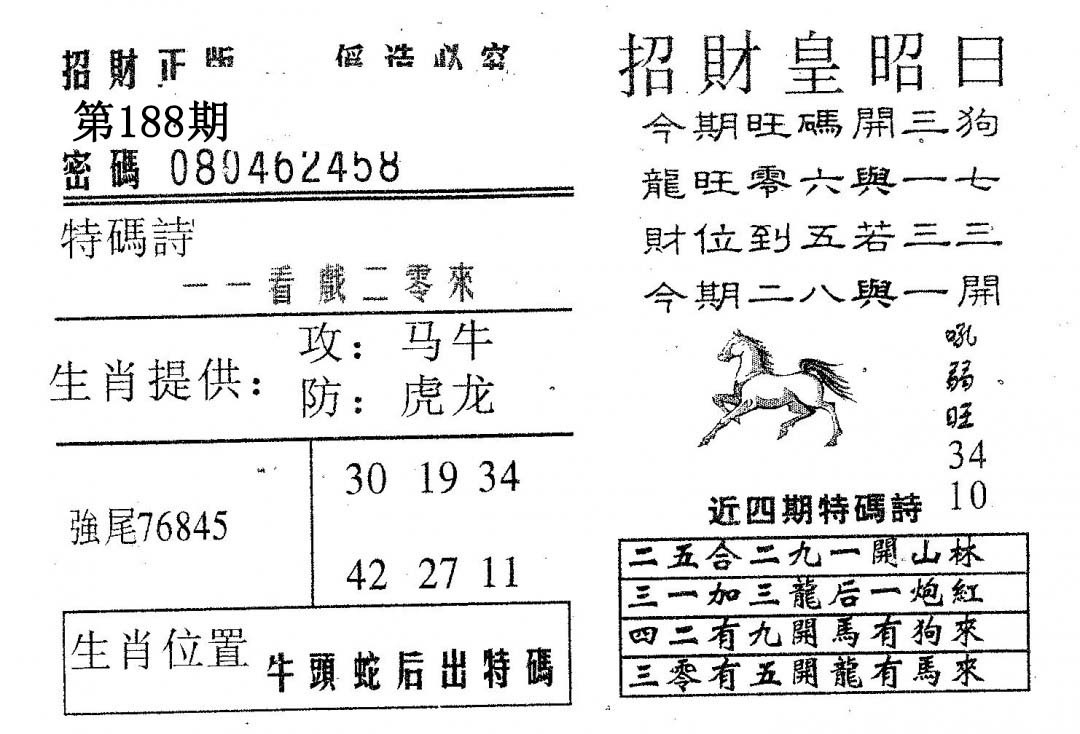 招財正版 偽造必究
第188期
密碼 080462458
特碼詩
一一看戲二零來
生肖提供：
攻：马牛
防：虎龙
強尾76845
30 19 34
42 27 11
生肖位置 牛頭蛇后出特碼
招財皇昭曰
今期旺碼開三狗
龍旺零六與一七
財位到五若三三
今期二八與一開
吼
弱
旺
34
10
近四期特碼詩
二五合二九一開山林
三一加三龍后一炮紅
四二有九開馬有狗來
三零有五開龍有馬來